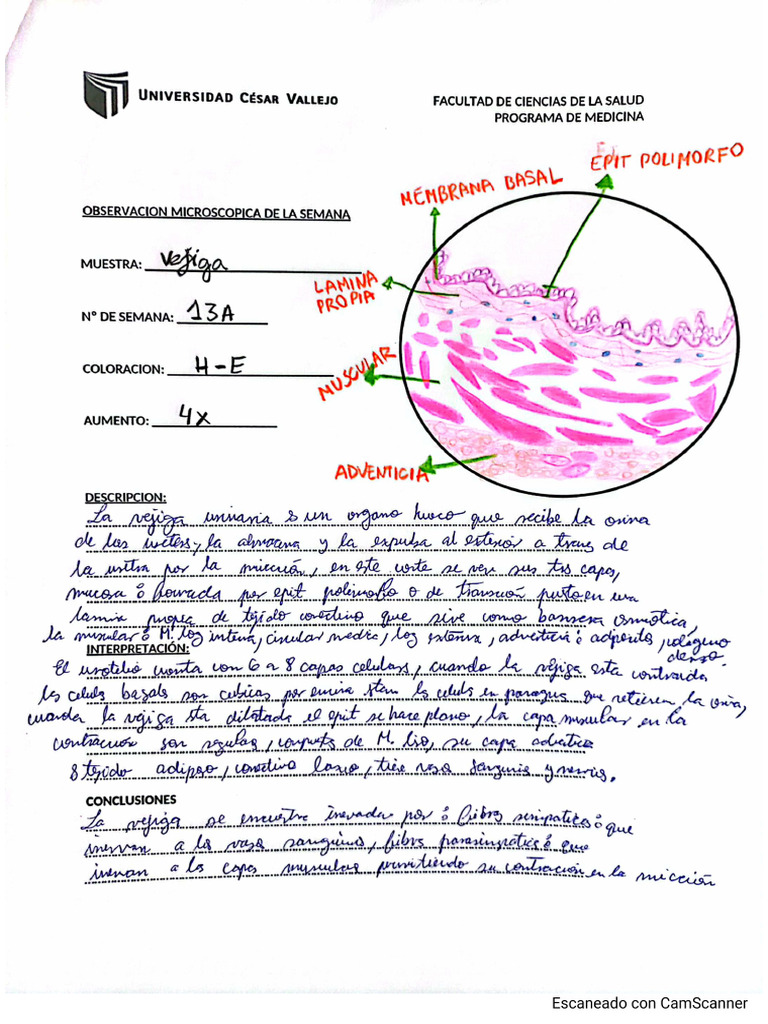 UNIVERSIDAD CÉSAR VALLEJO
FACULTAD DE CIENCIAS DE LA SALUD
PROGRAMA DE MEDICINA
EPIT POLIMORFO
MEMBRANA BASAL
OBSERVACION MICROSCOPICA DE LA SEMANA
MUESTRA: Vejiga
LAMINA
PROPIA
N° DE SEMANA: 13A
MUSCULAR
COLORACION: H-E
AUMENTO: 4x
ADVENTICIA
DESCRIPCION:
La vejiga urinaria es un organo hueco que recibe la orina
de los y la almacena y la expulsa al exterior a traves de
la uretra por la micción, en este corte se ven sus tres capas,
mucosa por epit polimorfo o de transición puesto en una
lamina propia de tejido conectivo que sirve como barrera osmótica,
la muscular M. log interna, circular media, log externa,
INTERPRETACIÓN:
El urotelio cuenta con 6 a 8 capas celulares, cuando la vejiga esta contraida
las celulas basales son cubicas por encima estan las celulas en paraguas que retienen la orina,
cuando la vejiga sta dilatada el epit se hace plano, la capa muscular en la
contracción son de M. liso, su capa
tejido adipso, conectivo laxo,
CONCLUSIONES
La vejiga se encuentra por fibras simpaticas que
inervan a los vasos sanguineos, fibra parasimpatica que
inervan a las capas musculares permitiendo su contracción en la micción
Escaneado con CamScanner